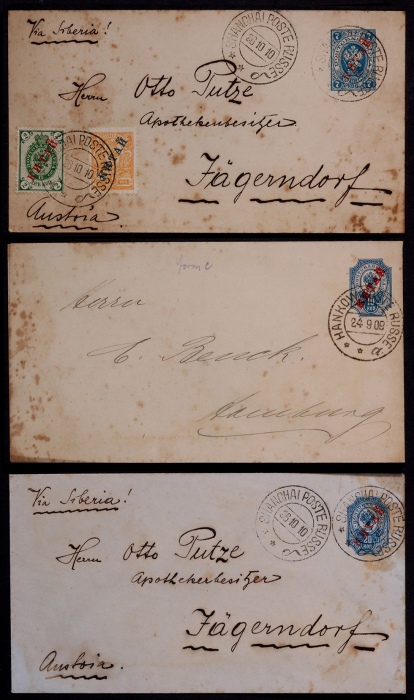 Via Siberia!
SHANGHAI POSTE RUSSE
26 10 10
Herrn Otto Putze
Apothekenbesitzer
Jägerndorf
КИТАЙ
КИТАЙ
SHANGHAI POSTE RUSSE
10 10
Austria
HANKOW POSTE RUSSE
24 9 09
a
Herrn
C. Benck.
Hamburg
Via Siberia!
SHANGHAI POSTE RUSSE
26 10 10
20
Herrn Otto Putze
Apothekerbesitzer
Jägerndorf
Austria.